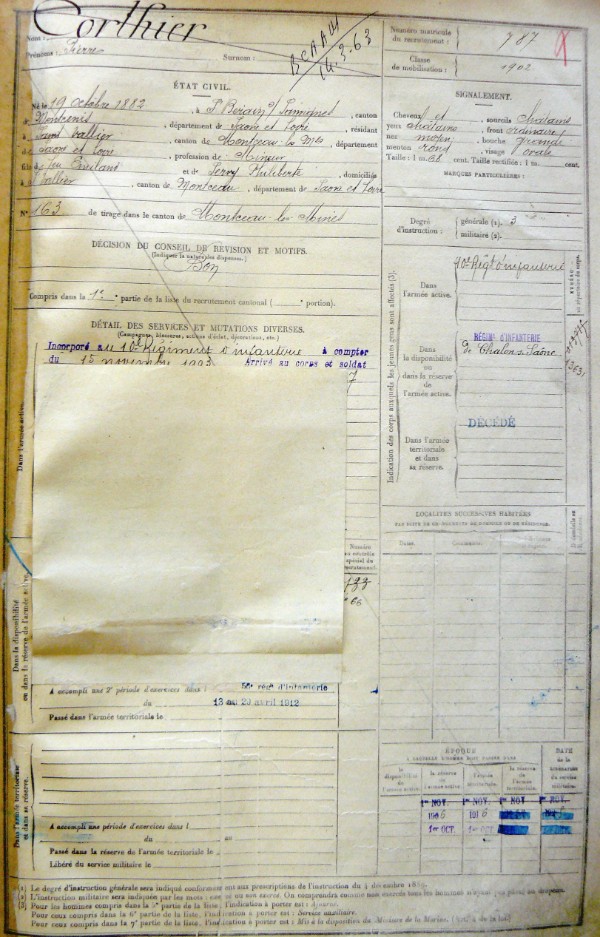 Nom : Corthier
Prénoms : Pierre Surnom :
BCAAM
14.3.63
Numéro matricule
du recrutement : 787
Classe
de mobilisation : 1902
ÉTAT CIVIL.
Né le 19 octobre 1882, à St Berain s/ Sanvignes, canton
de Montcenis, département de Saône et Loire, résidant
à Saint Vallier, canton de Montceau les Mes, département
de Saône et Loire, profession de Mineur
fils de feu et de Philiberte, domiciliés
à St Vallier, canton de Montceau, département de Saône et Loire
N° 163 de tirage dans le canton de Montceau-les-Mines
DÉCISION DU CONSEIL DE RÉVISION ET MOTIFS.
(Indiquer la nature des dispenses.)
Bon
Compris dans la 1re partie de la liste du recrutement cantonal ( portion).
DÉTAIL DES SERVICES ET MUTATIONS DIVERSES.
(Campagnes, blessures, actions d'éclat, décorations, etc.)
Incorporé au 10e Régiment d'infanterie à compter
du 15 novembre 1903 Arrivé au corps et soldat
Dans l'armée active.
Numéro
au contrôle
spécial du
recrutement.
Dans la disponibilité
ou dans la réserve de l'armée active.
A accompli une 2e période d'exercices dans : rég d'infanterie
du 13 au 29 avril 1912
Passé dans l'armée territoriale le
Dans l'armée territoriale
et dans sa réserve.
A accompli une période d'exercices dans l
du au
Passé dans la réserve de l'armée territoriale le
Libéré du service militaire le
SIGNALEMENT.
Cheveux et sourcils châtains
yeux châtains, front ordinaire
nez moyen, bouche grande
menton rond, visage ovale
Taille : 1 m. cent. Taille rectifiée : 1 m. cent.
MARQUES PARTICULIÈRES :
Degré
d'instruction :
générale (1). 3
militaire (2).
Indication des corps auxquels les jeunes gens sont affectés (3).
Dans
l'armée active.
10e Régt d'infanterie
Dans
la disponibilité
ou dans la réserve
de l'armée active.
RÉGION D'INFANTERIE
de Chalon s/ Saône
Dans l'armée
territoriale
et dans
sa réserve.
DÉCÉDÉ
LOCALITÉS SUCCESSIVES HABITÉES
Dates.
Communes.
ÉPOQUE
À LAQUELLE L'HOMME DOIT PASSER DANS
DATE
de la
libération
du service
militaire.
la disponibilité
de l'armée active.
la réserve
de l'armée active.
l'armée
territoriale.
la réserve
de l'armée
territoriale.
1er NOV. 1er NOV. 1er NOV. 1er NOV.
1906 1916
1er OCT. 1er OCT.
(1) Le degré d'instruction générale sera indiqué conformément aux prescriptions de l'instruction du 4 décembre
Pour ceux compris dans la 6e partie de la liste, l'indication à porter est : Service auxiliaire.
Pour ceux compris dans la 7e partie de la liste, l'indication à porter est : Mis à la disposition du Ministre de la Marine.